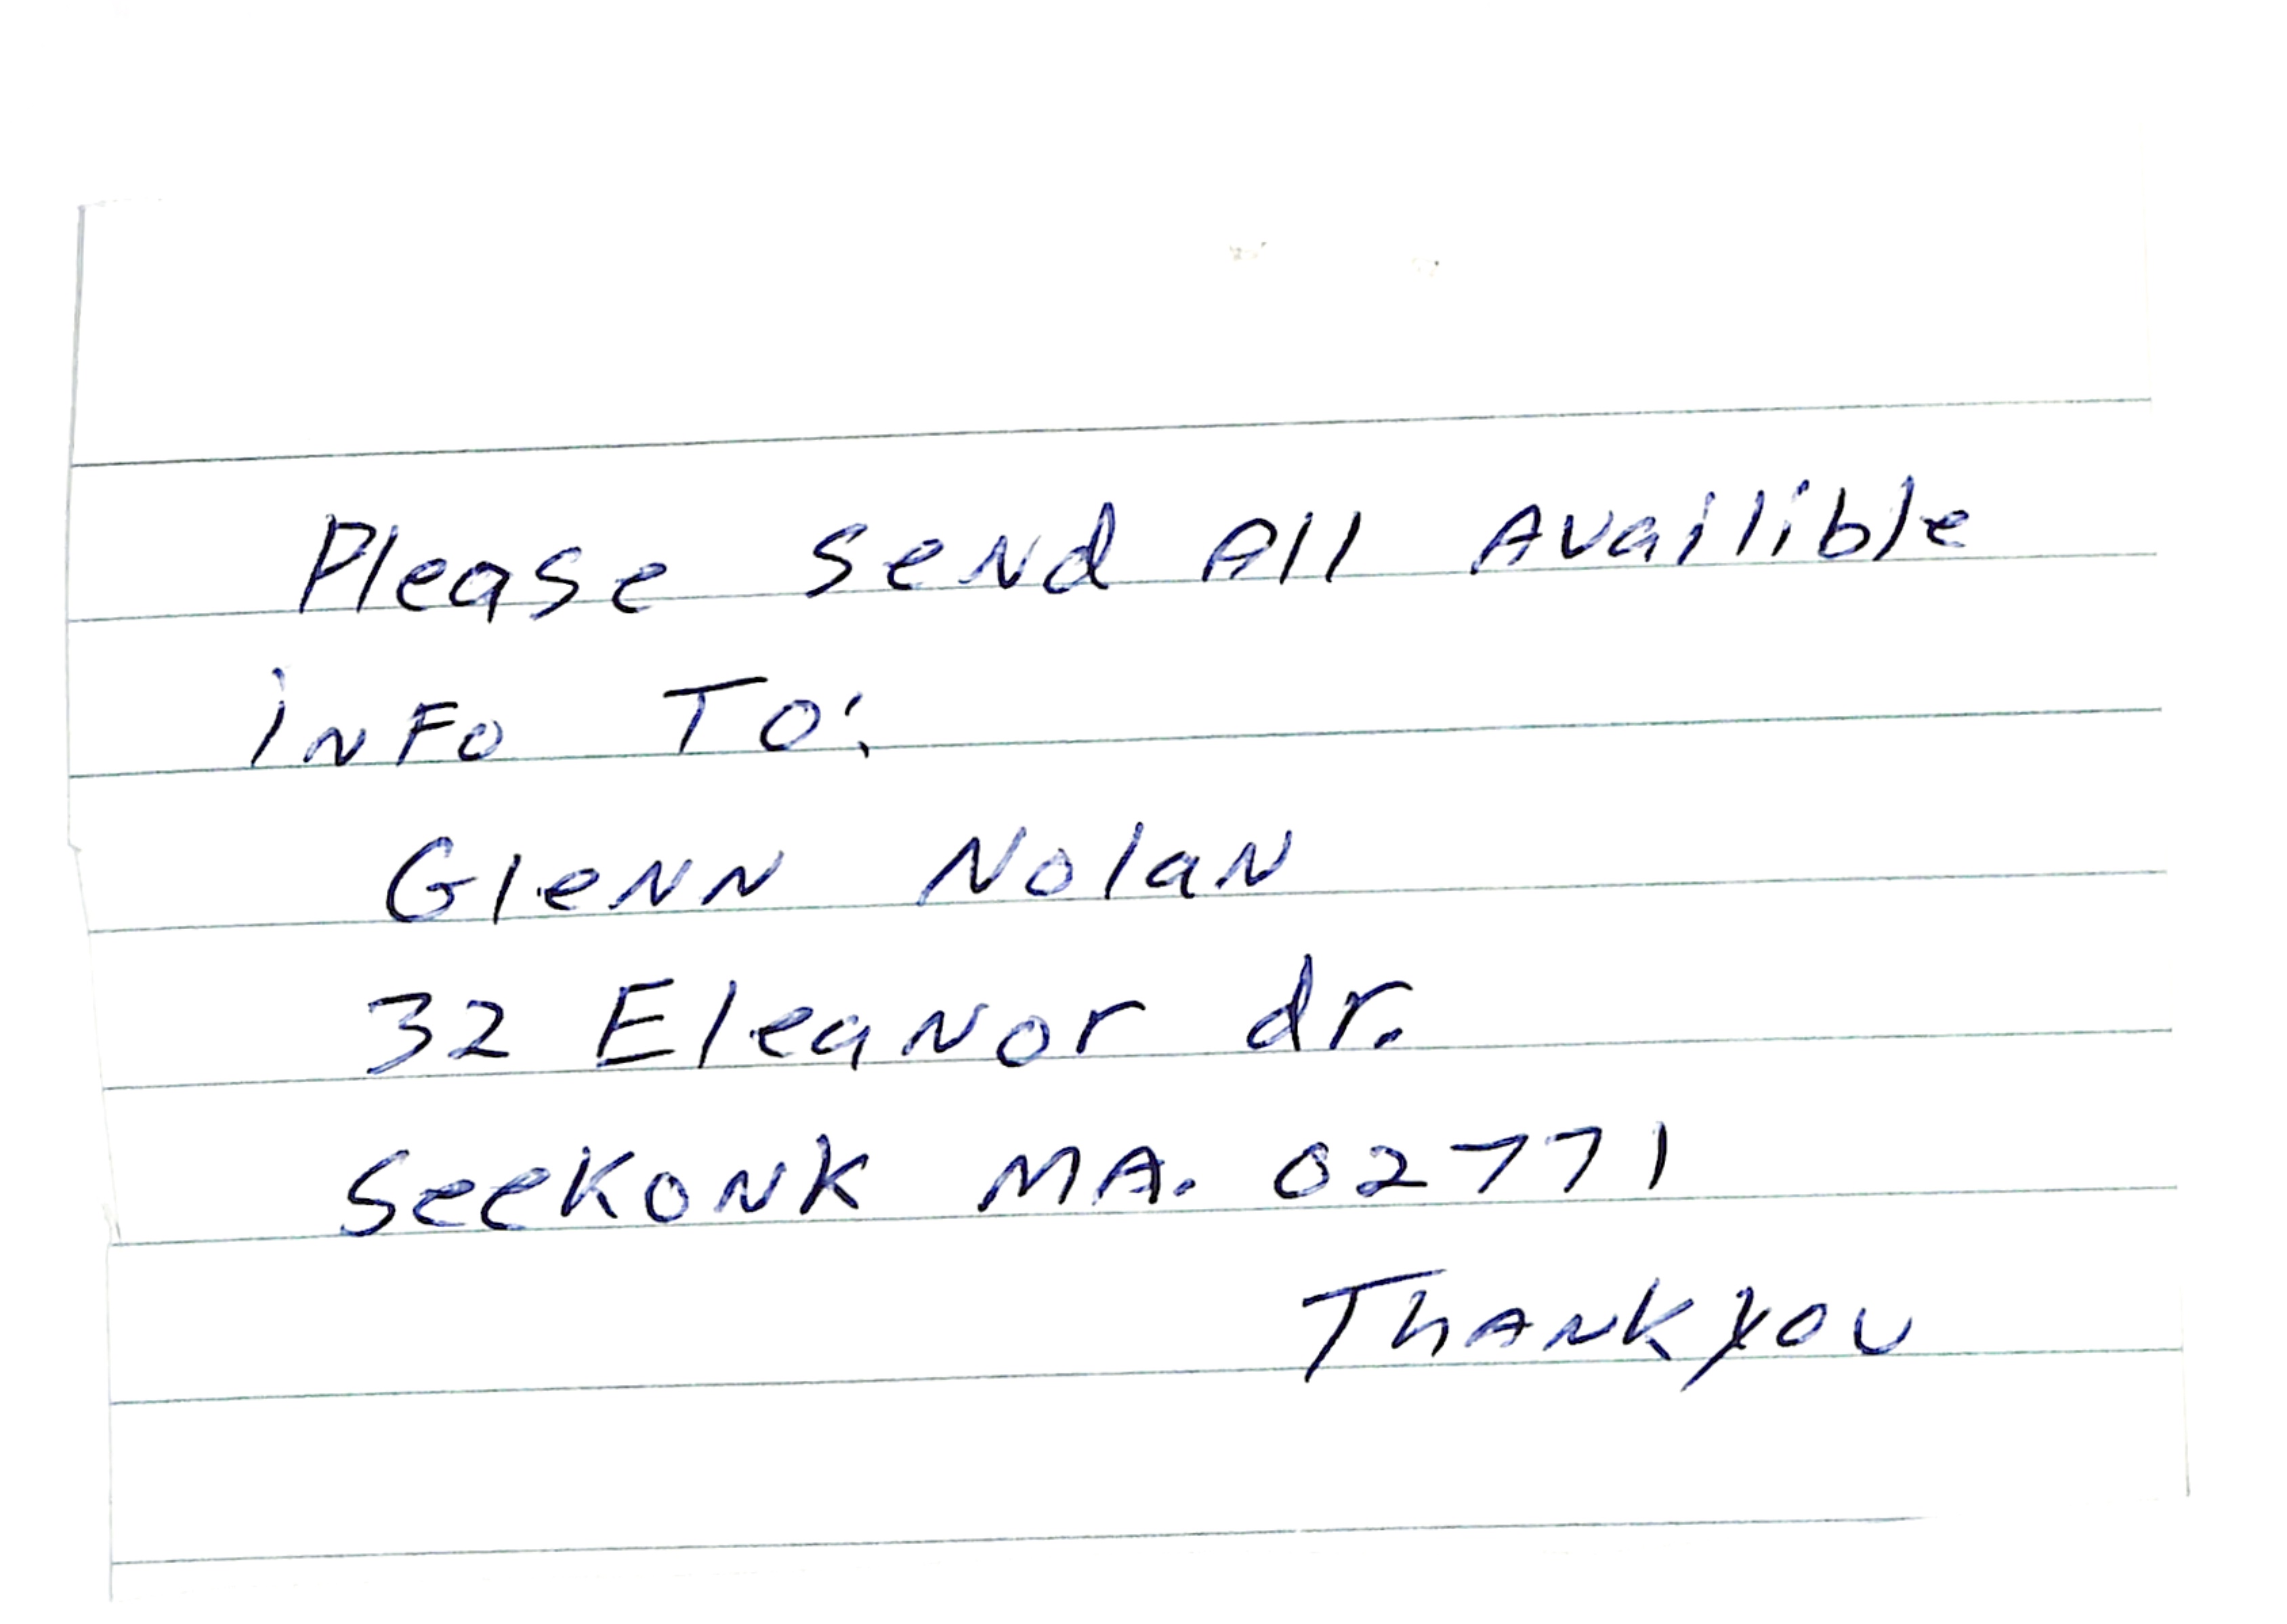 Please send All Availible
info To:
Glenn Nolan
32 Eleanor dr.
Seekonk MA. 02771
Thank you